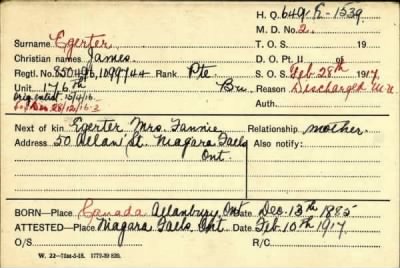 H. Q. 649-E-1539
M. D. No. 2.
Surname Egerter T. O. S. 19
Christian names James. D. O. Pt. II of
Regtl. No. 850496, 1099744 Rank Pte S. O. S. Feb. 28th 1917,
Unit 176th Bn. Reason Discharged M.U.
Orig. enlist. 15/4/16 Auth.
28/12/16-2
Next of kin Egerter Mrs. Fannie Relationship mother.
Address 50 St. Niagara Falls Also notify:
Ont.
BORN—Place Canada Allanburg, Ont Date Dec. 13th 1885
ATTESTED—Place Niagara Falls Ont. Date Feb. 10th 1917.
O/S R/C